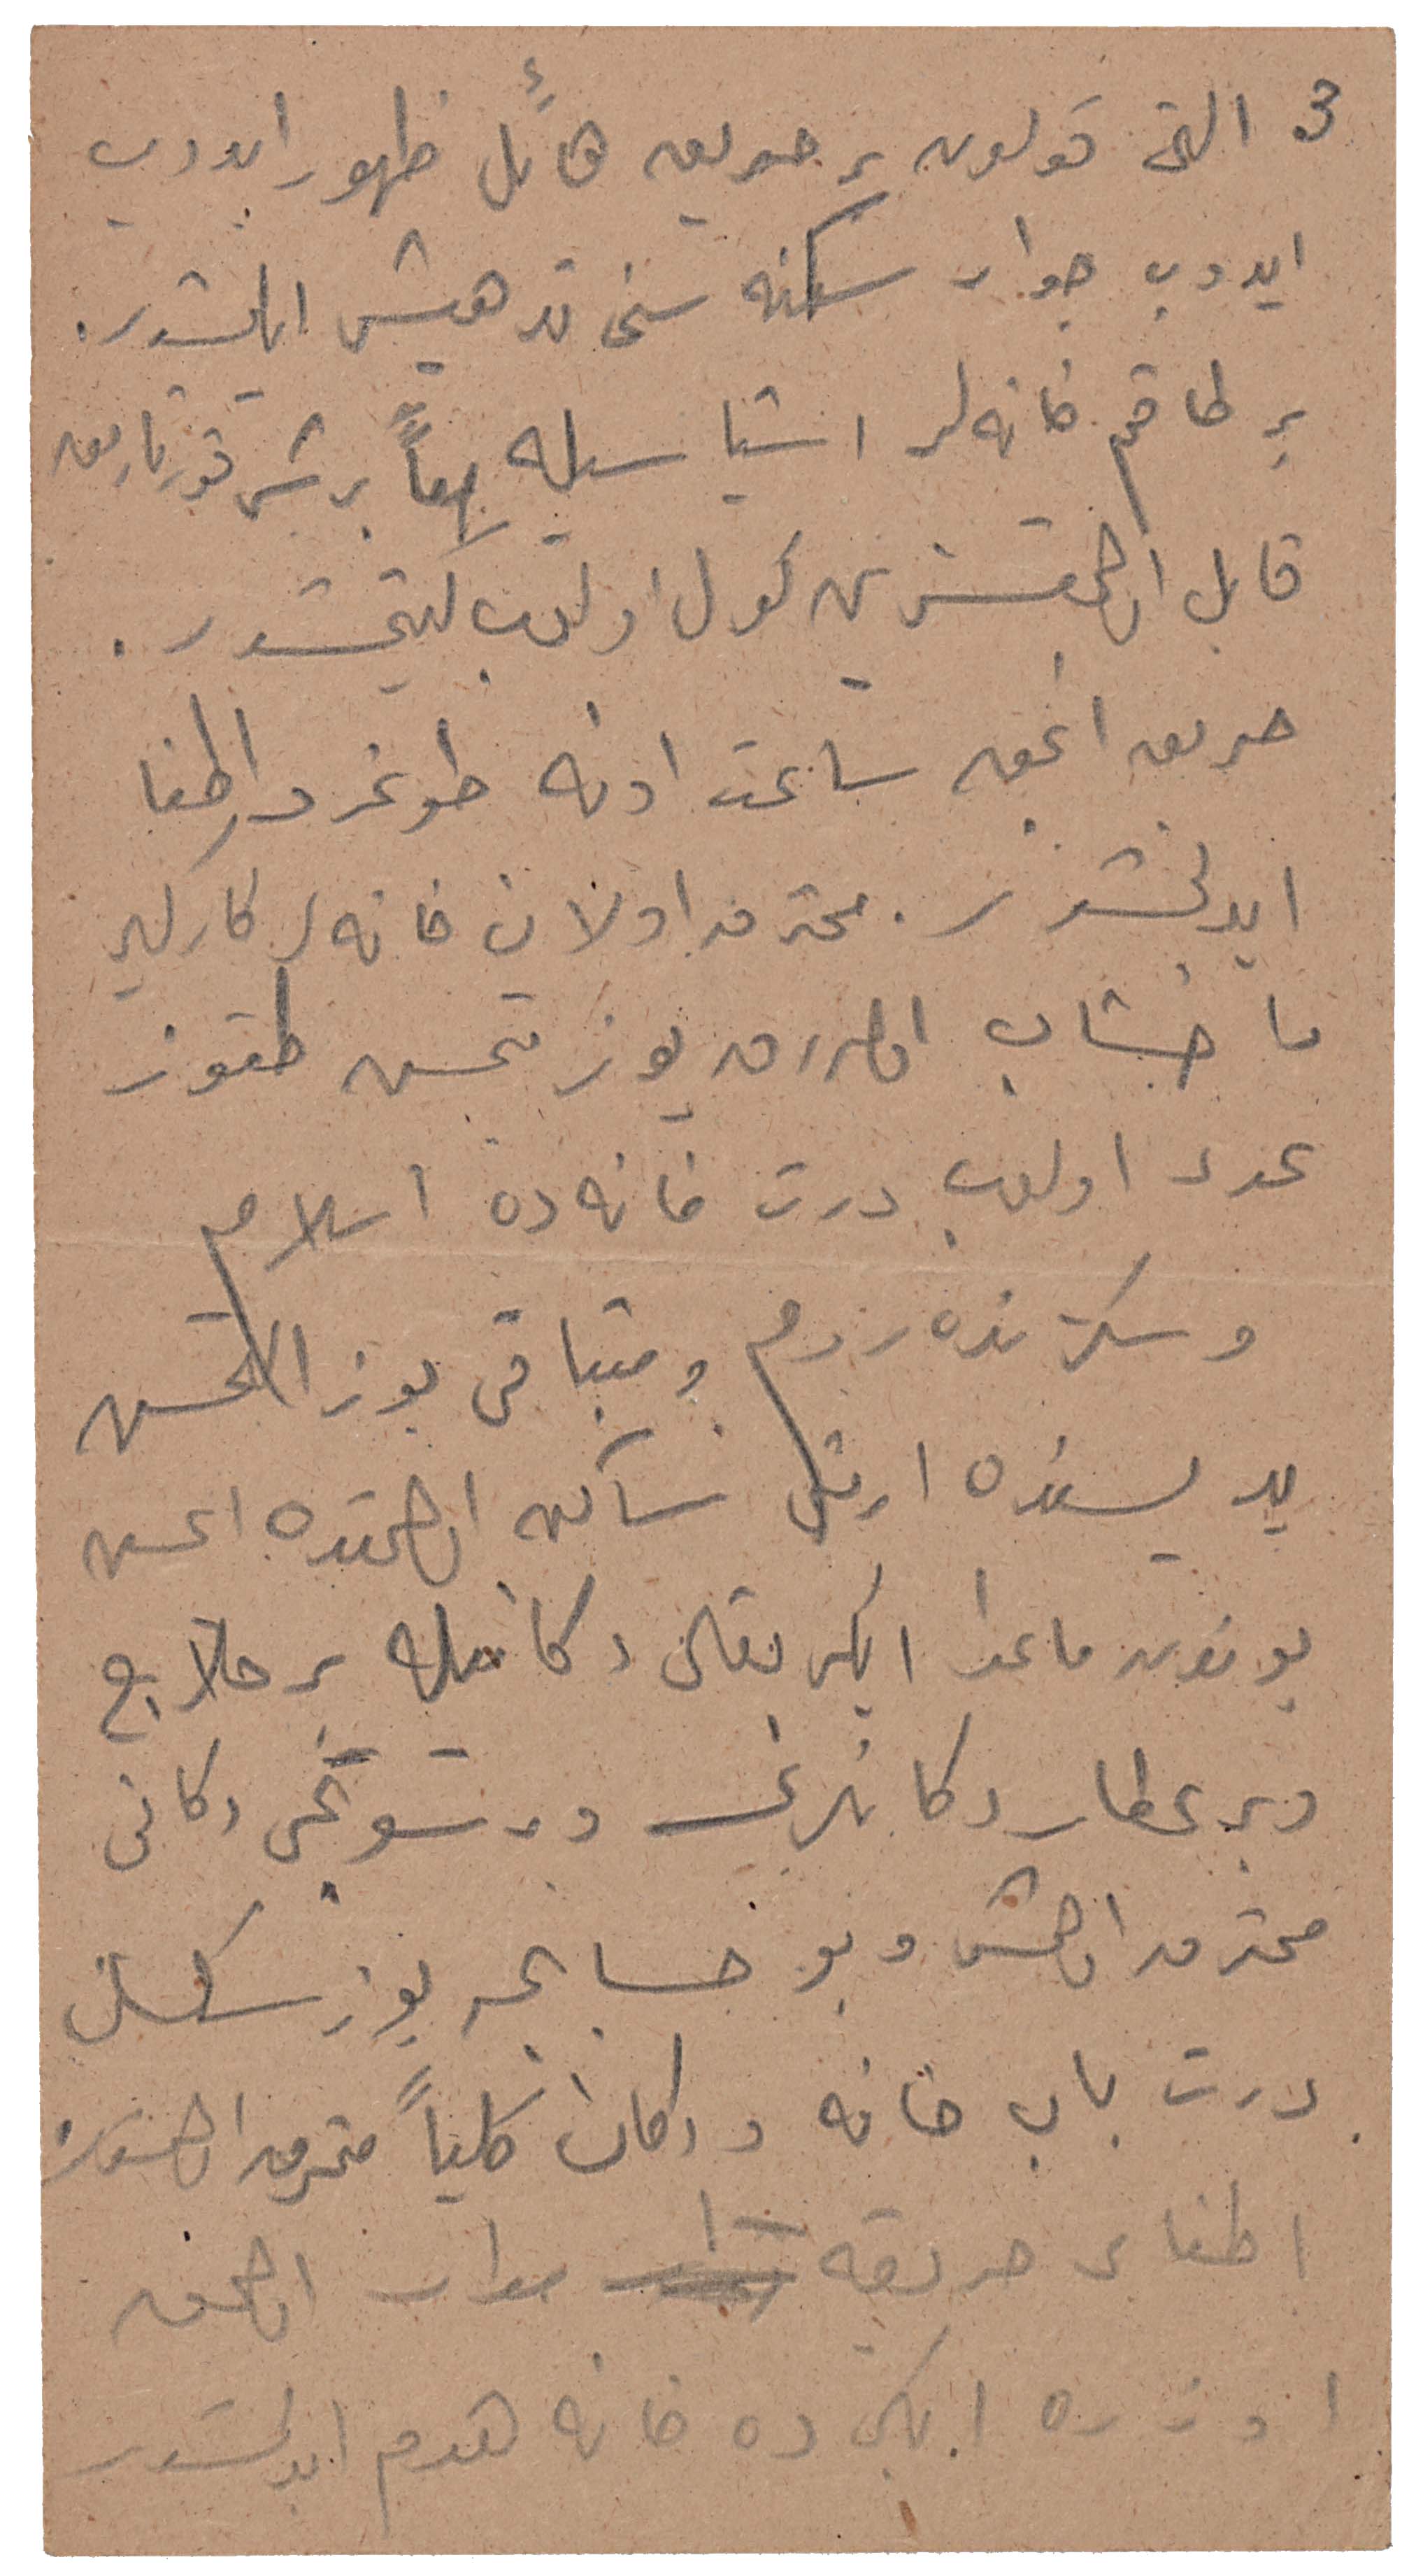 3 التی قولدن بر حریق هائل ظهور ایدوب
ایدوب جوار سکنه سنی تدهیش ایلمشدر.
بر طاقم خانه لر اشیا سیله برشی قورتارمق
قابل اولمقسزین کول اولوب کیتمشدر.
حریق انجق ساعت اونه طوغرو اطفا
ایدلمشدر. محترق اولان خانه لر کارکیر
یا خشاب اوله رق یوز یتمش طقوز
عدد اولوب درت خانه ده اسلام
و سکزنده روم و متباقی یوز التمش
یدیسنده ارمنی ساکن اولمقده ایمش
بوندن ماعدا ایکی بقال دکانیله بر حلاج
وبر عطار دکانلری و بر سوتجی دکانی
محترق اولمش و بو حسابجه یوز سکسان
درت باب خانه و دکان کلیاً محترق اولمشدر.
اطفای حریقه مدار اولمق
اوزره ایکی ده خانه هدم ایدلمشدر